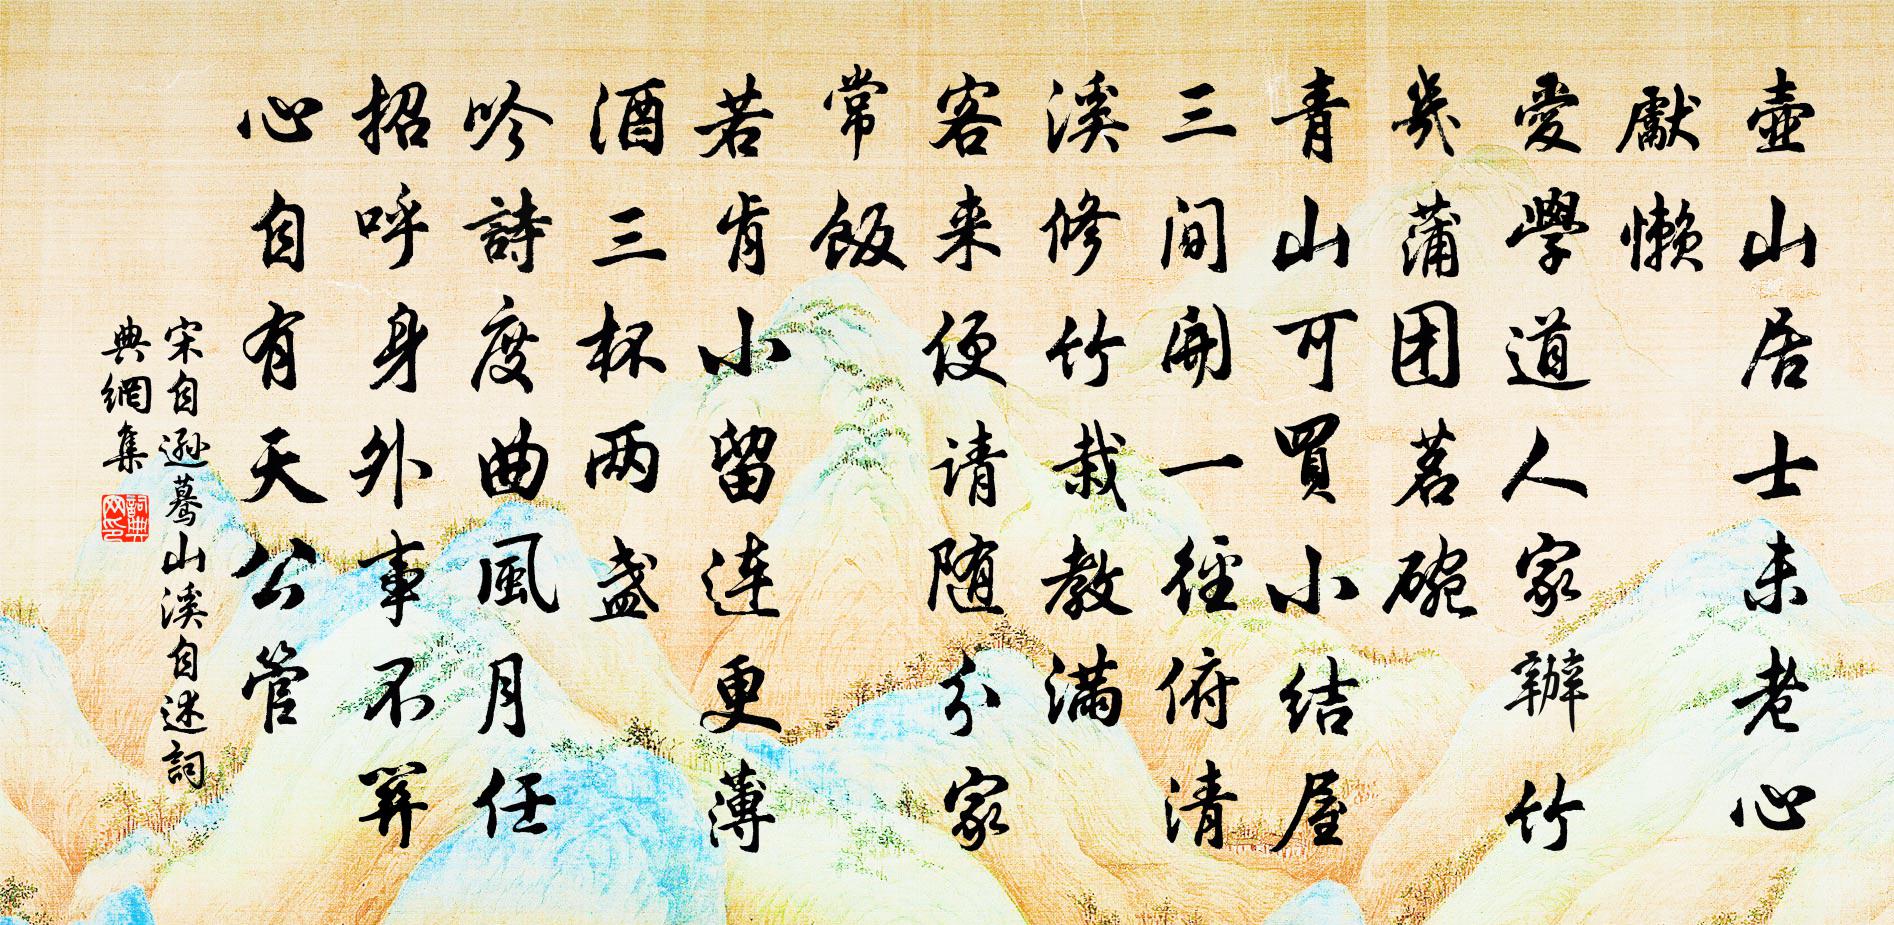 壺山居士未老心
獻懶
愛學道人家辦竹
幾蒲团茗碗
青山可買小結屋
三间開一徑俯清
溪修竹栽教满
客来便请随分家
常飯
若肯小留連更薄
酒三杯两盞
吟詩度曲風月任
招呼身外事不関
心自有天公管
宋自遜驀山溪自述詞
典網集
詞典
网印